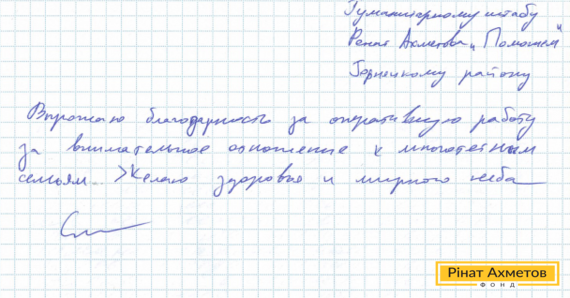 Гуманитарному штабу
Рената Ахметова „Поможем"
Горняцкому району
Выражаю благодарность за оперативную работу
за внимательное отношение к многодетным
семьям... Желаю здоровья и мирного неба
Рінат Ахметов
ФОНД